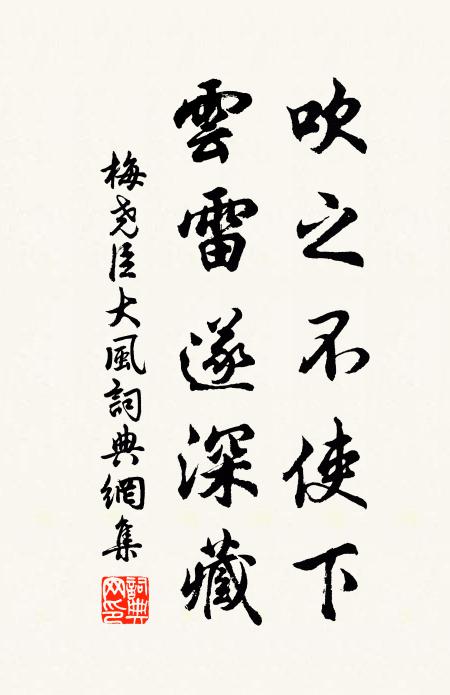 吹之不使下
雲雷遂深藏
梅尧臣大風詞典網集
詞典網印